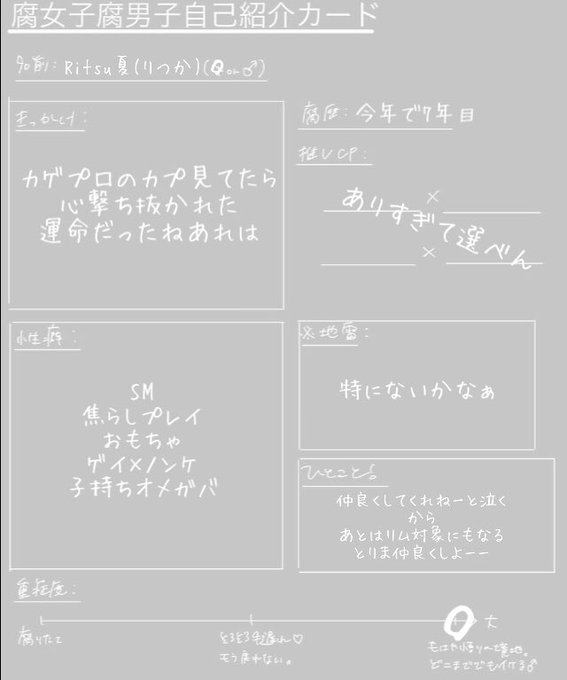 腐女子腐男子自己紹介カード
名前: Ritsu夏(りつか)(♀or♂)
きっかけ:
カゲプロのカプ見てたら
心撃ち抜かれた
運命だったねあれは
腐歴: 今年で7年目
推しCP:
×
ありすぎて選べん
×
性癖:
SM
焦らしプレイ
おもちゃ
ゲイ×ノンケ
子持ちオメガバ
※地雷:
特にないかなぁ
ひとこと
仲良くしてくれねーと泣く
から
あとはリム対象にもなる
とりま仲良くしよーー
重症度:
腐りたて
もう戻れない。
大
もはや悟りの境地。
どこまででもイケる♂